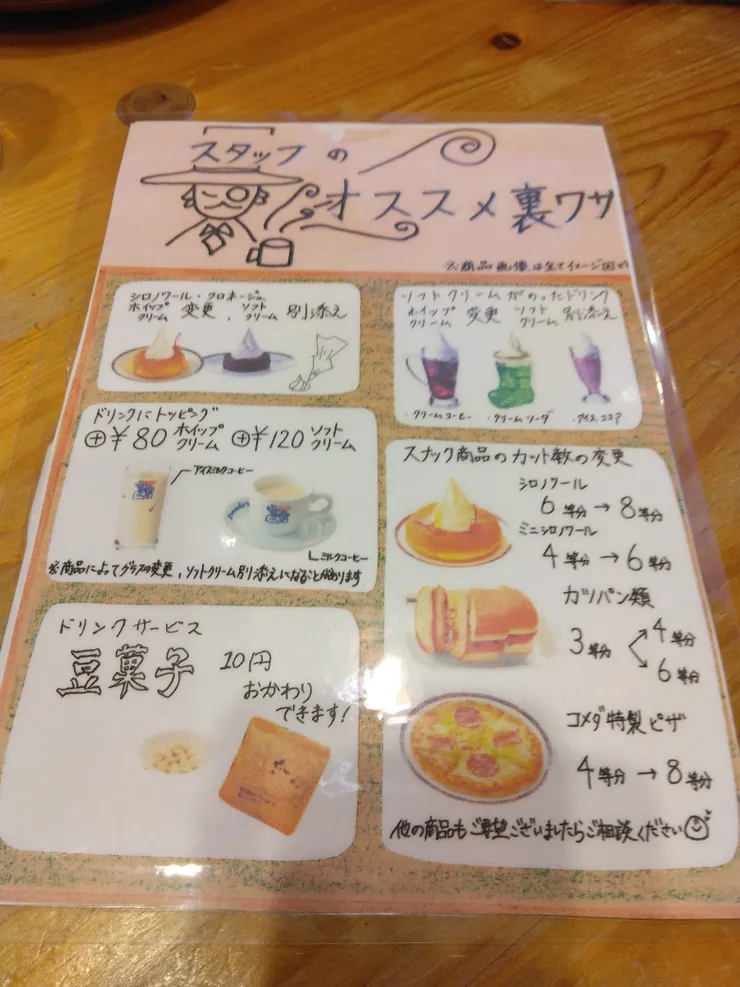 スタッフの
オススメ裏ワザ
※商品画像は全てイメージ図です
シロノワール・クロネージュ
ホイップクリーム 変更、ソフトクリーム 別添え
ソフトクリームがのったドリンク
ホイップクリーム 変更 ソフトクリーム 別添え
・クリームコーヒー ・クリームソーダ ・アイスココア
ドリンクにトッピング
⊕¥80 ホイップクリーム ⊕¥120 ソフトクリーム
アイスミルクコーヒー
ミルクコーヒー
※商品によってグラス変更、ソフトクリーム別添えになることがあります
スナック商品のカット数の変更
シロノワール
6等分→8等分
ミニシロノワール
4等分→6等分
カツパン類
3等分
4等分
6等分
コメダ特製ピザ
4等分→8等分
他の商品もご希望ございましたらご相談ください
ドリンクサービス
豆菓子 10円
おかわり
できます!